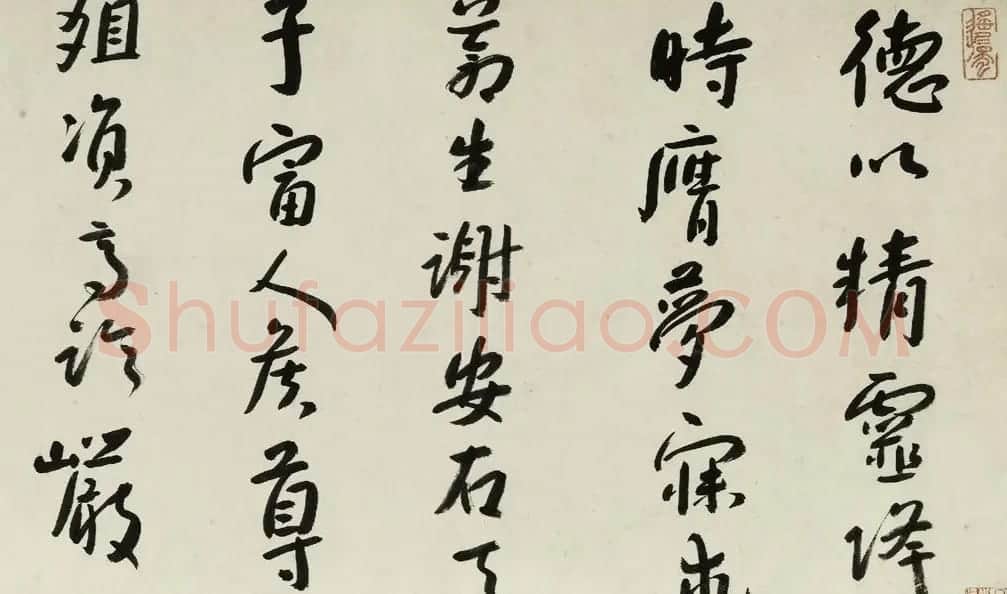 德以精靈降
時膺夢寐求
蒼生謝安石天
子富人侯尊
俎須高論巖
Shufaziliao.COM